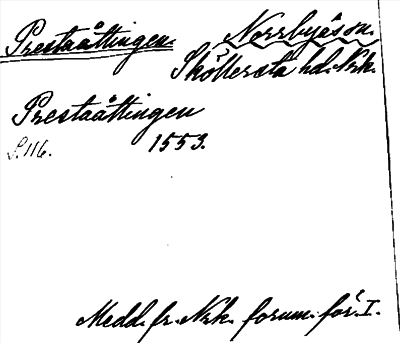 Prestaåttingen. Norrbyås sn.
Sköllersta hd. Nrk.
Prestaåttingen
S. 116. 1553.
Medd. fr. Nrk. fornm. för. I.